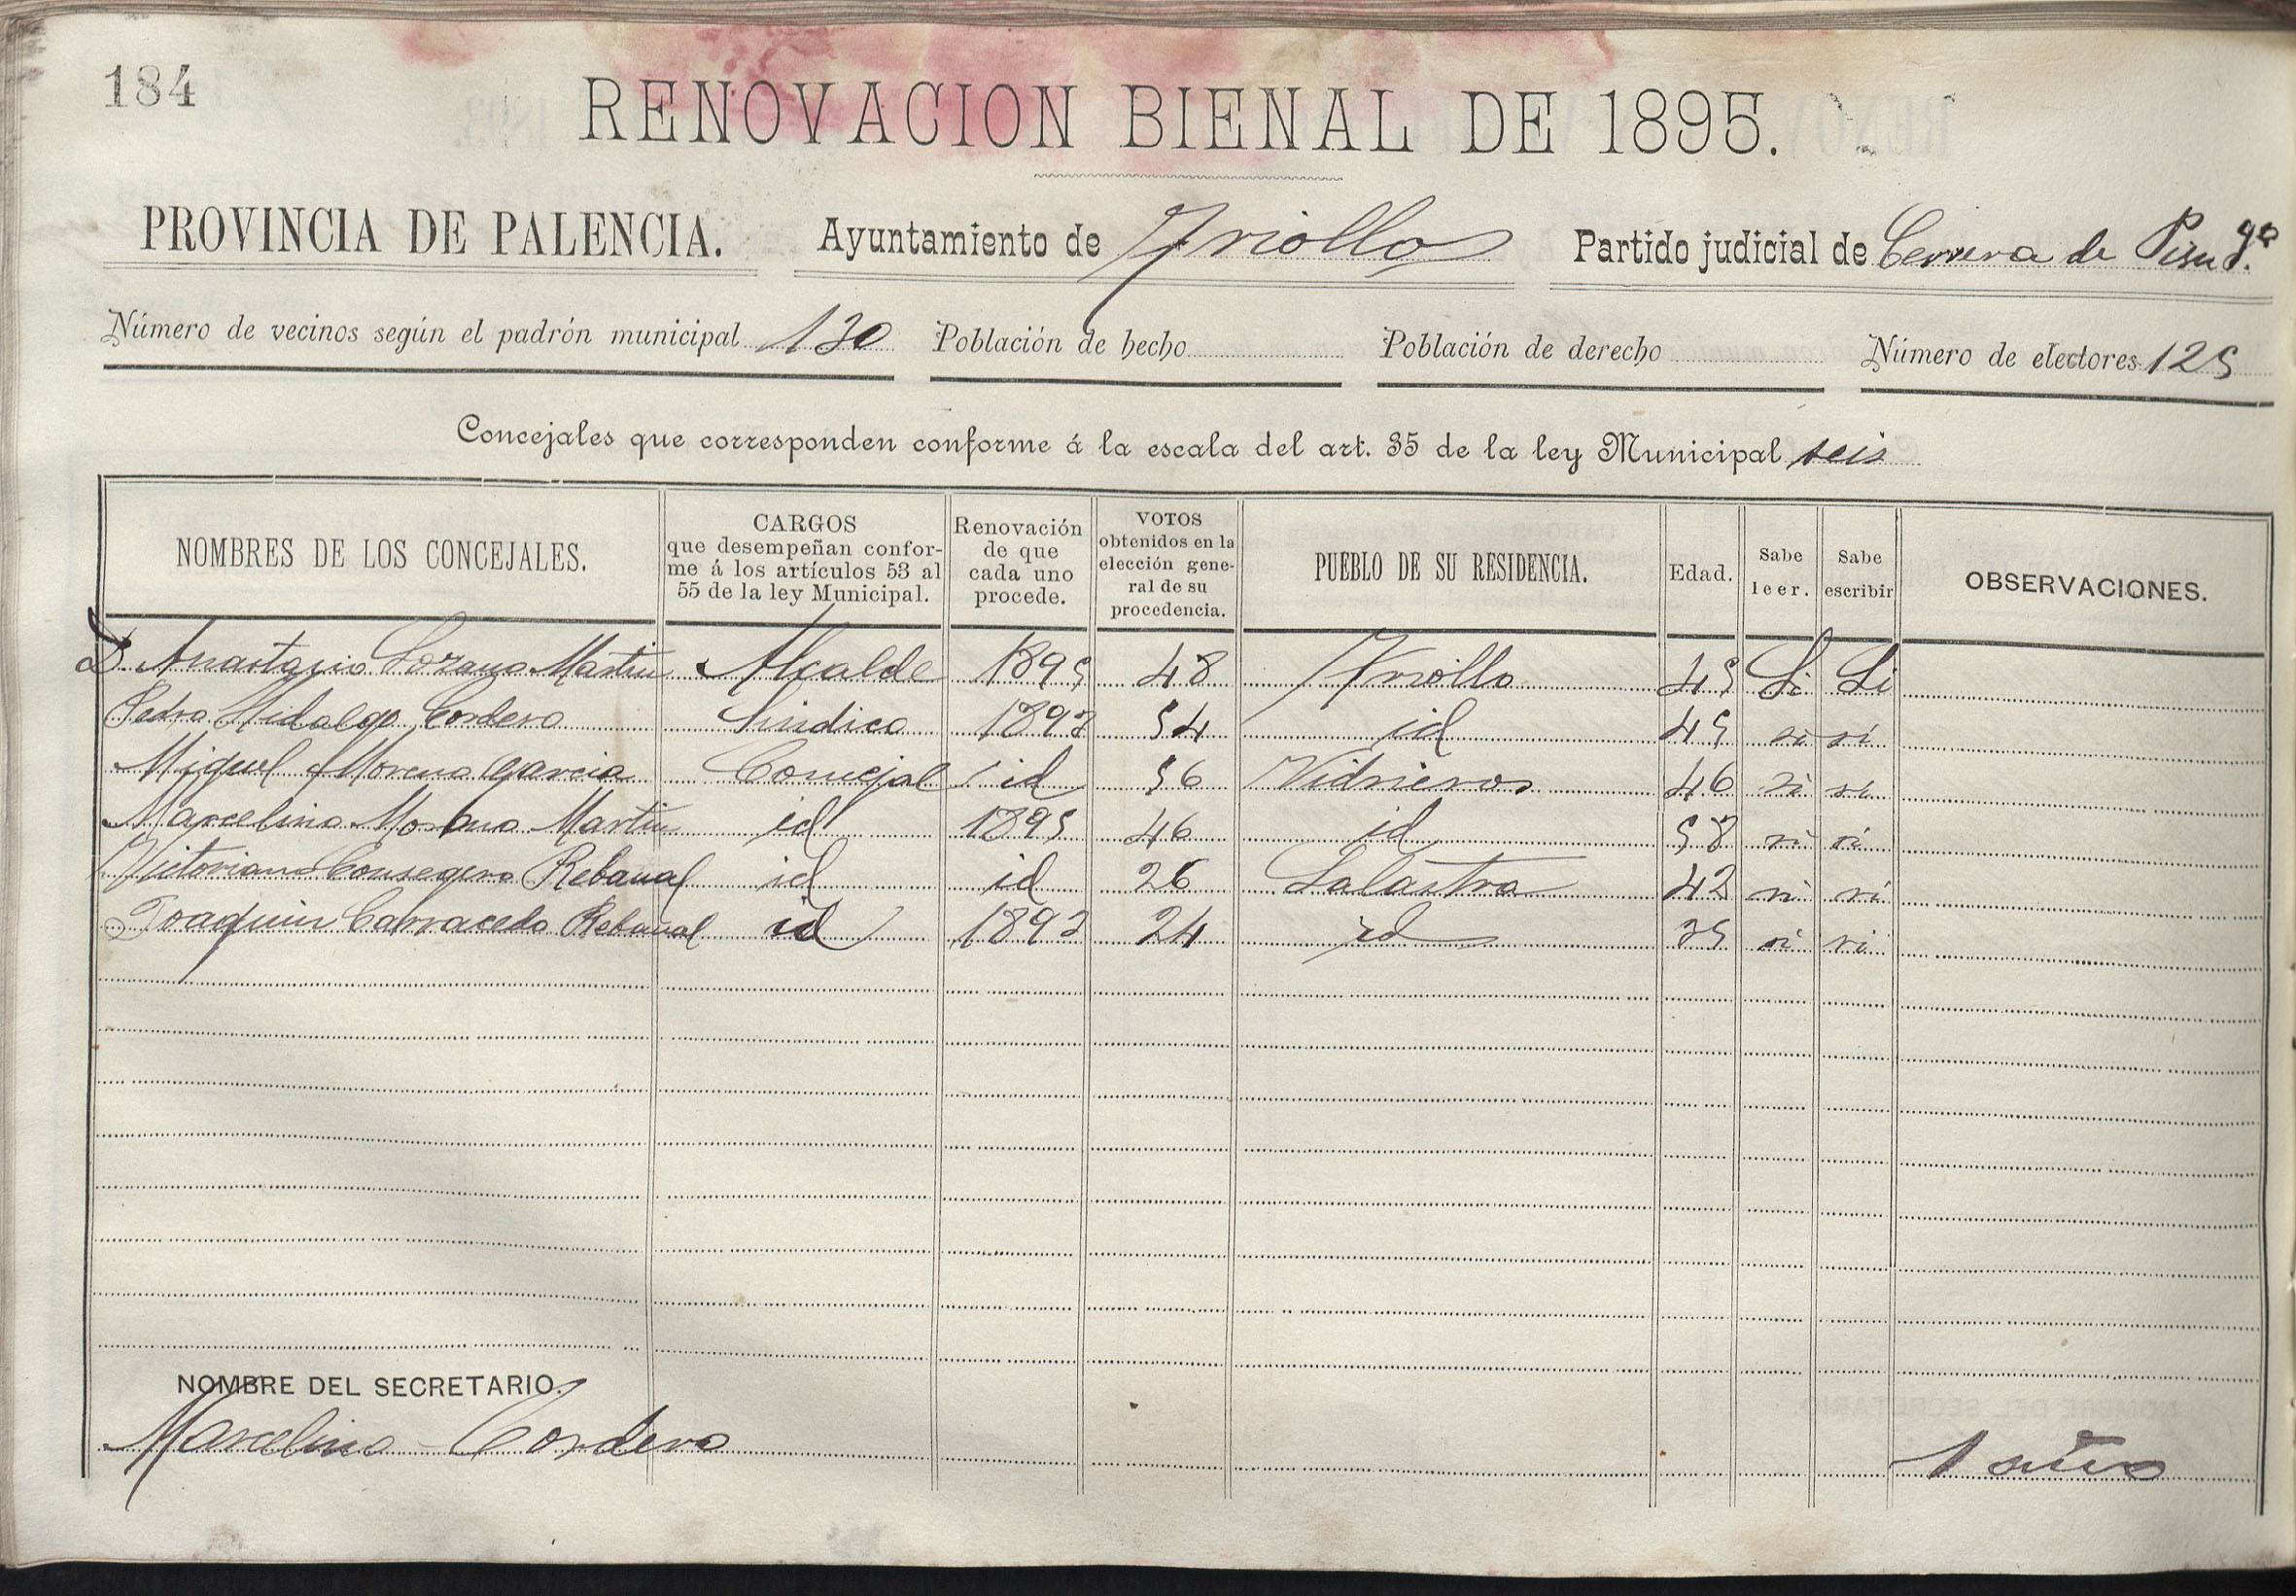 184
RENOVACION BIENAL DE 1895.
PROVINCIA DE PALENCIA. Ayuntamiento de Triollo Partido judicial de Cervera de Pisug.ª
Número de vecinos según el padrón municipal 130 Población de hecho Población de derecho Número de electores 125
Concejales que corresponden conforme á la escala del art. 35 de la ley Municipal seis
NOMBRES DE LOS CONCEJALES. CARGOS que desempeñan confor-me á los artículos 53 al 55 de la ley Municipal. Renovación de que cada uno procede. VOTOS obtenidos en la elección gene-ral de su procedencia. PUEBLO DE SU RESIDENCIA. Edad. Sabe leer. Sabe escribir OBSERVACIONES.
D. Anastasio Lozano Martin Alcalde 1895 48 Triollo 45 Si Si
Pedro Hidalgo Cordero Sindico 1893 54 id 45 si si
Miguel Moreno Garcia Concejal id 56 Vidrieros 46 si si
Marcelino Martin id 1895 46 id 58 si si
Victoriano Consegero Rebanal id id 26 Lalastra 42 si si
Joaquin Carracedo Rebanal id 1893 24 id 35 si si
NOMBRE DEL SECRETARIO.
Marcelino Cordero
1